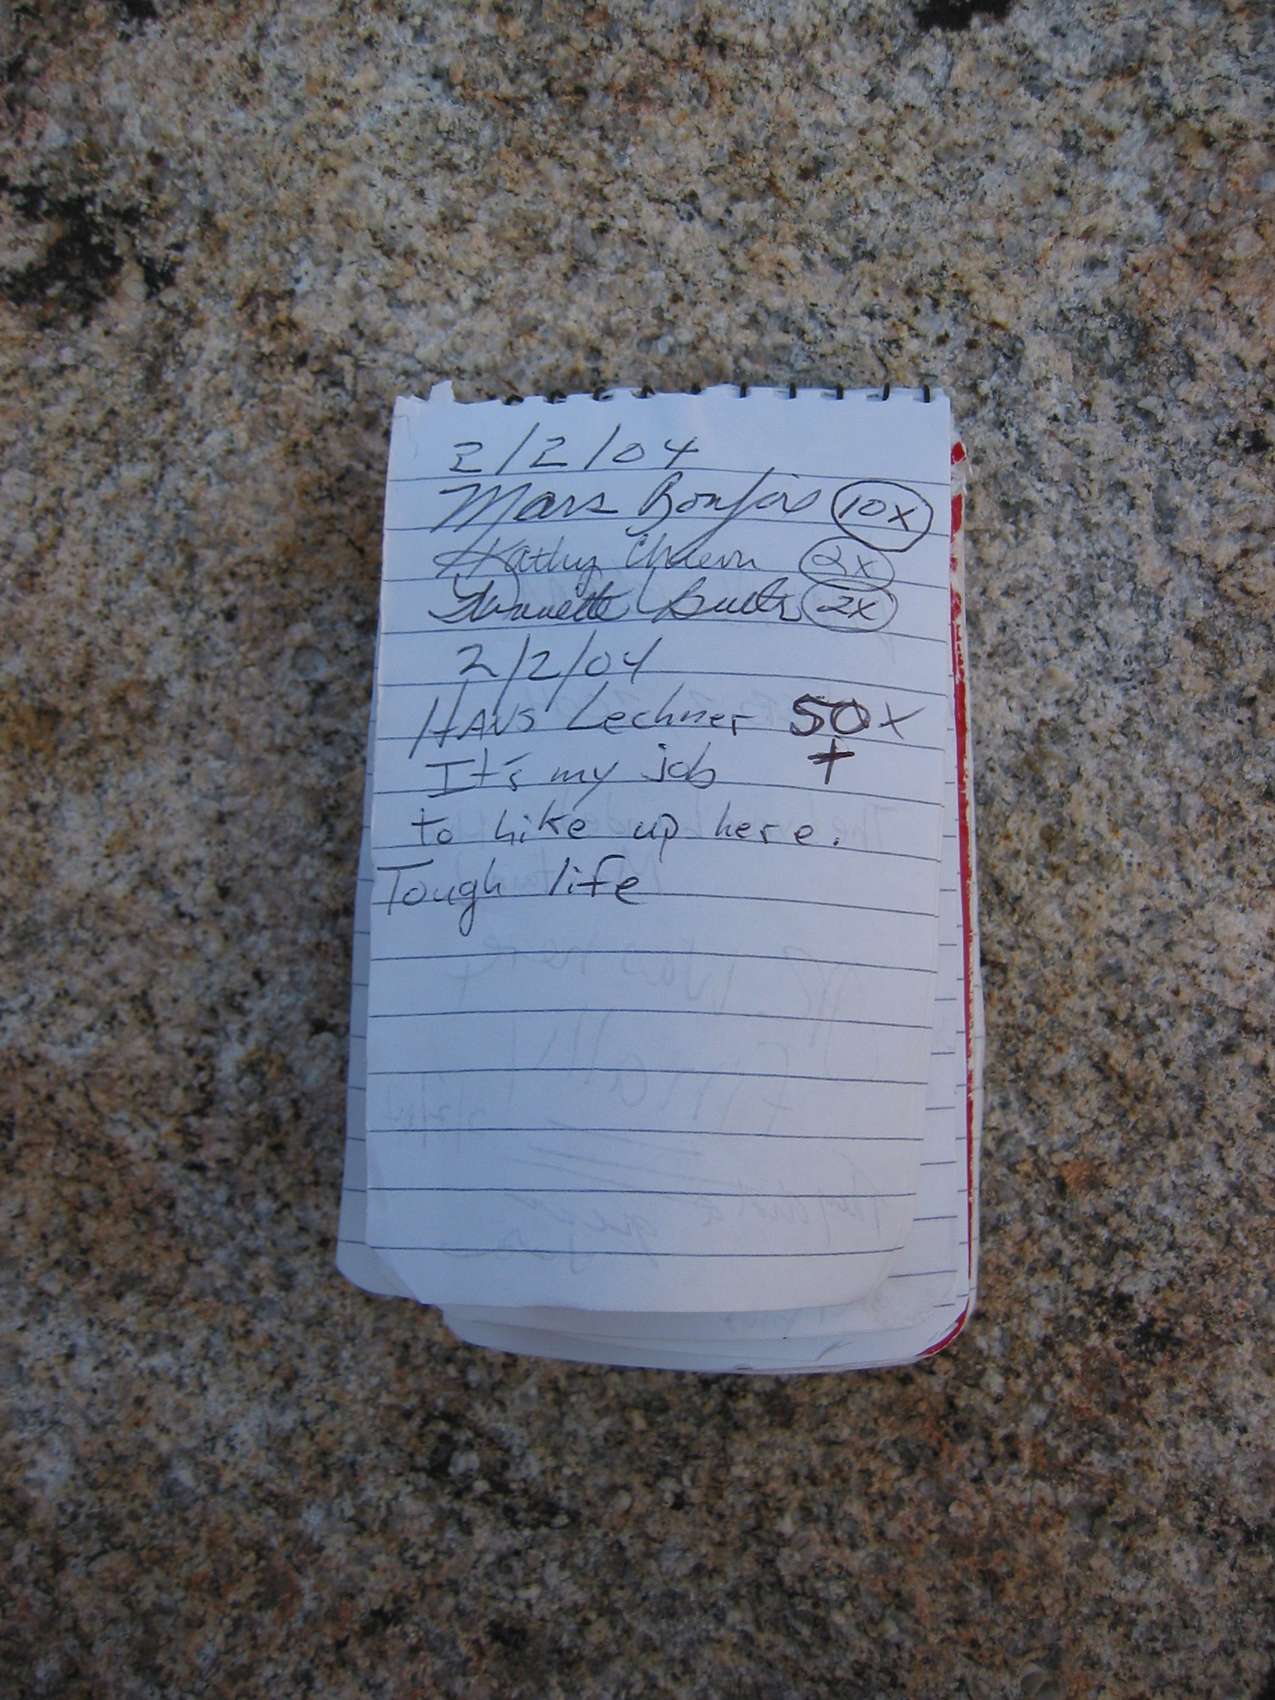 2/2/04
Mars Bonfire 10x
Kathy Cheever 2x
2x
2/2/04
HANS Lechner 50x
It's my job +
to hike up here.
Tough life